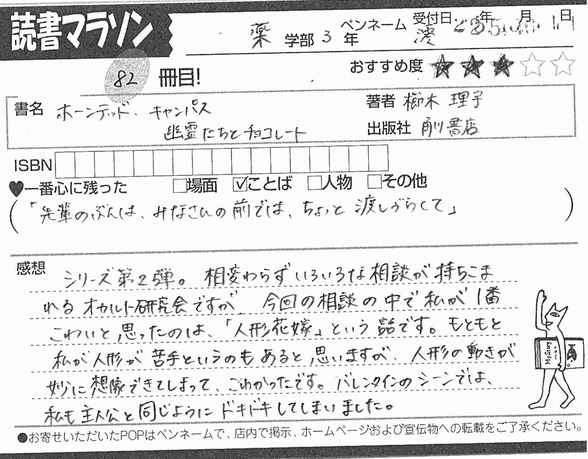 読書マラソン
薬 学部 3 年 ペンネーム 澪 受付日 年 月 日
82 冊目! おすすめ度 ★★★☆☆
書名 ホーンテッド・キャンパス 著者 櫛木 理子
幽霊たちとチョコレート 出版社 角川書店
ISBN
♥一番心に残った □場面 ☑ことば □人物 □その他
(「先輩のぶんは、みなさんの前では、ちょっと 渡しづらくて」)
感想 シリーズ第2弾。相変わらずいろいろな相談が持ちこま
れるオカルト研究会ですが、今回の相談の中で私が1番
こわいと思ったのは、「人形花嫁」という話です。もともと
私が人形が苦手というのもあると思いますが、人形の動きが
妙に想像できてしまって、こわかったです。バレンタインのシーンでは、
私も主人公と同じようにドキドキしてしまいました。
●お寄せいただいたPOPはペンネームで、店内で掲示、ホームページおよび宣伝物への転載をご了承ください。